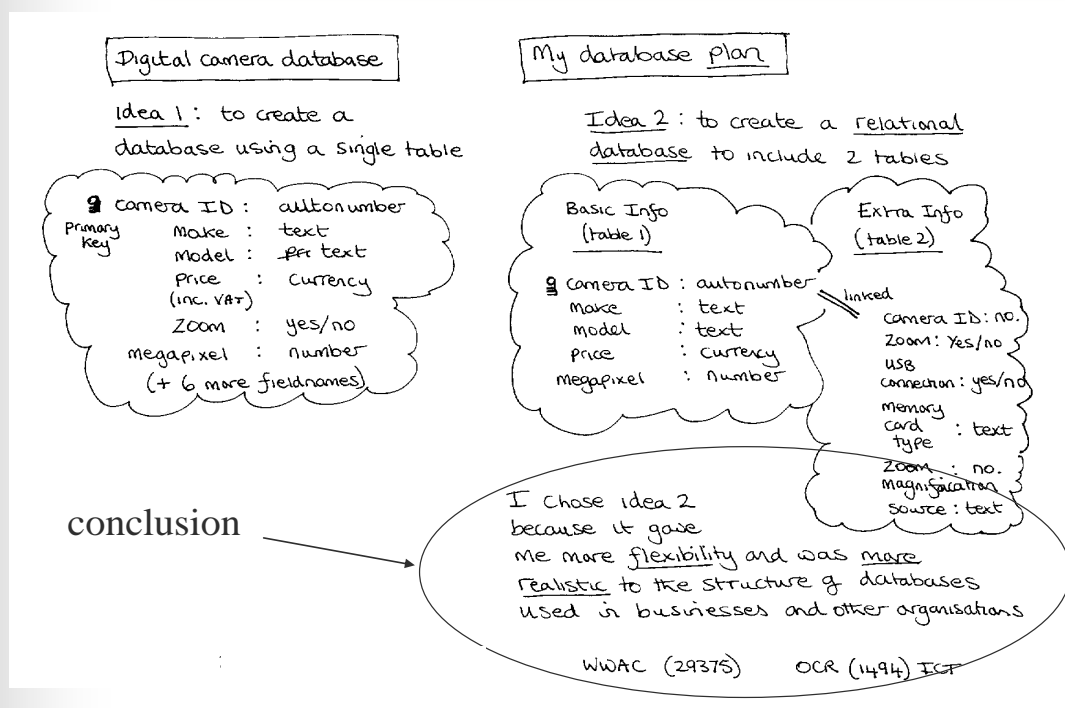 Digital camera database
Idea 1 : to create a
database using a single table
camera ID : autonumber
Primary
Key
Make : text
Model : text
Price : currency
(inc. VAT)
Zoom : yes/no
megapixel : number
(+ 6 more fieldnames)
My database plan
Idea 2 : to create a relational
database to include 2 tables
Basic Info
(table 1)
camera ID : autonumber
make : text
model : text
price : currency
megapixel : number
linked
Extra Info
(table 2)
camera ID : no.
Zoom : Yes/no
USB
connection : yes/no
memory
card
type : text
zoom : no.
magnification
source : text
conclusion
I chose idea 2
because it gave
me more flexibility and was more
realistic to the structure of databases
used in businesses and other organisations
WWAC (29375) OCR (1494) ICT